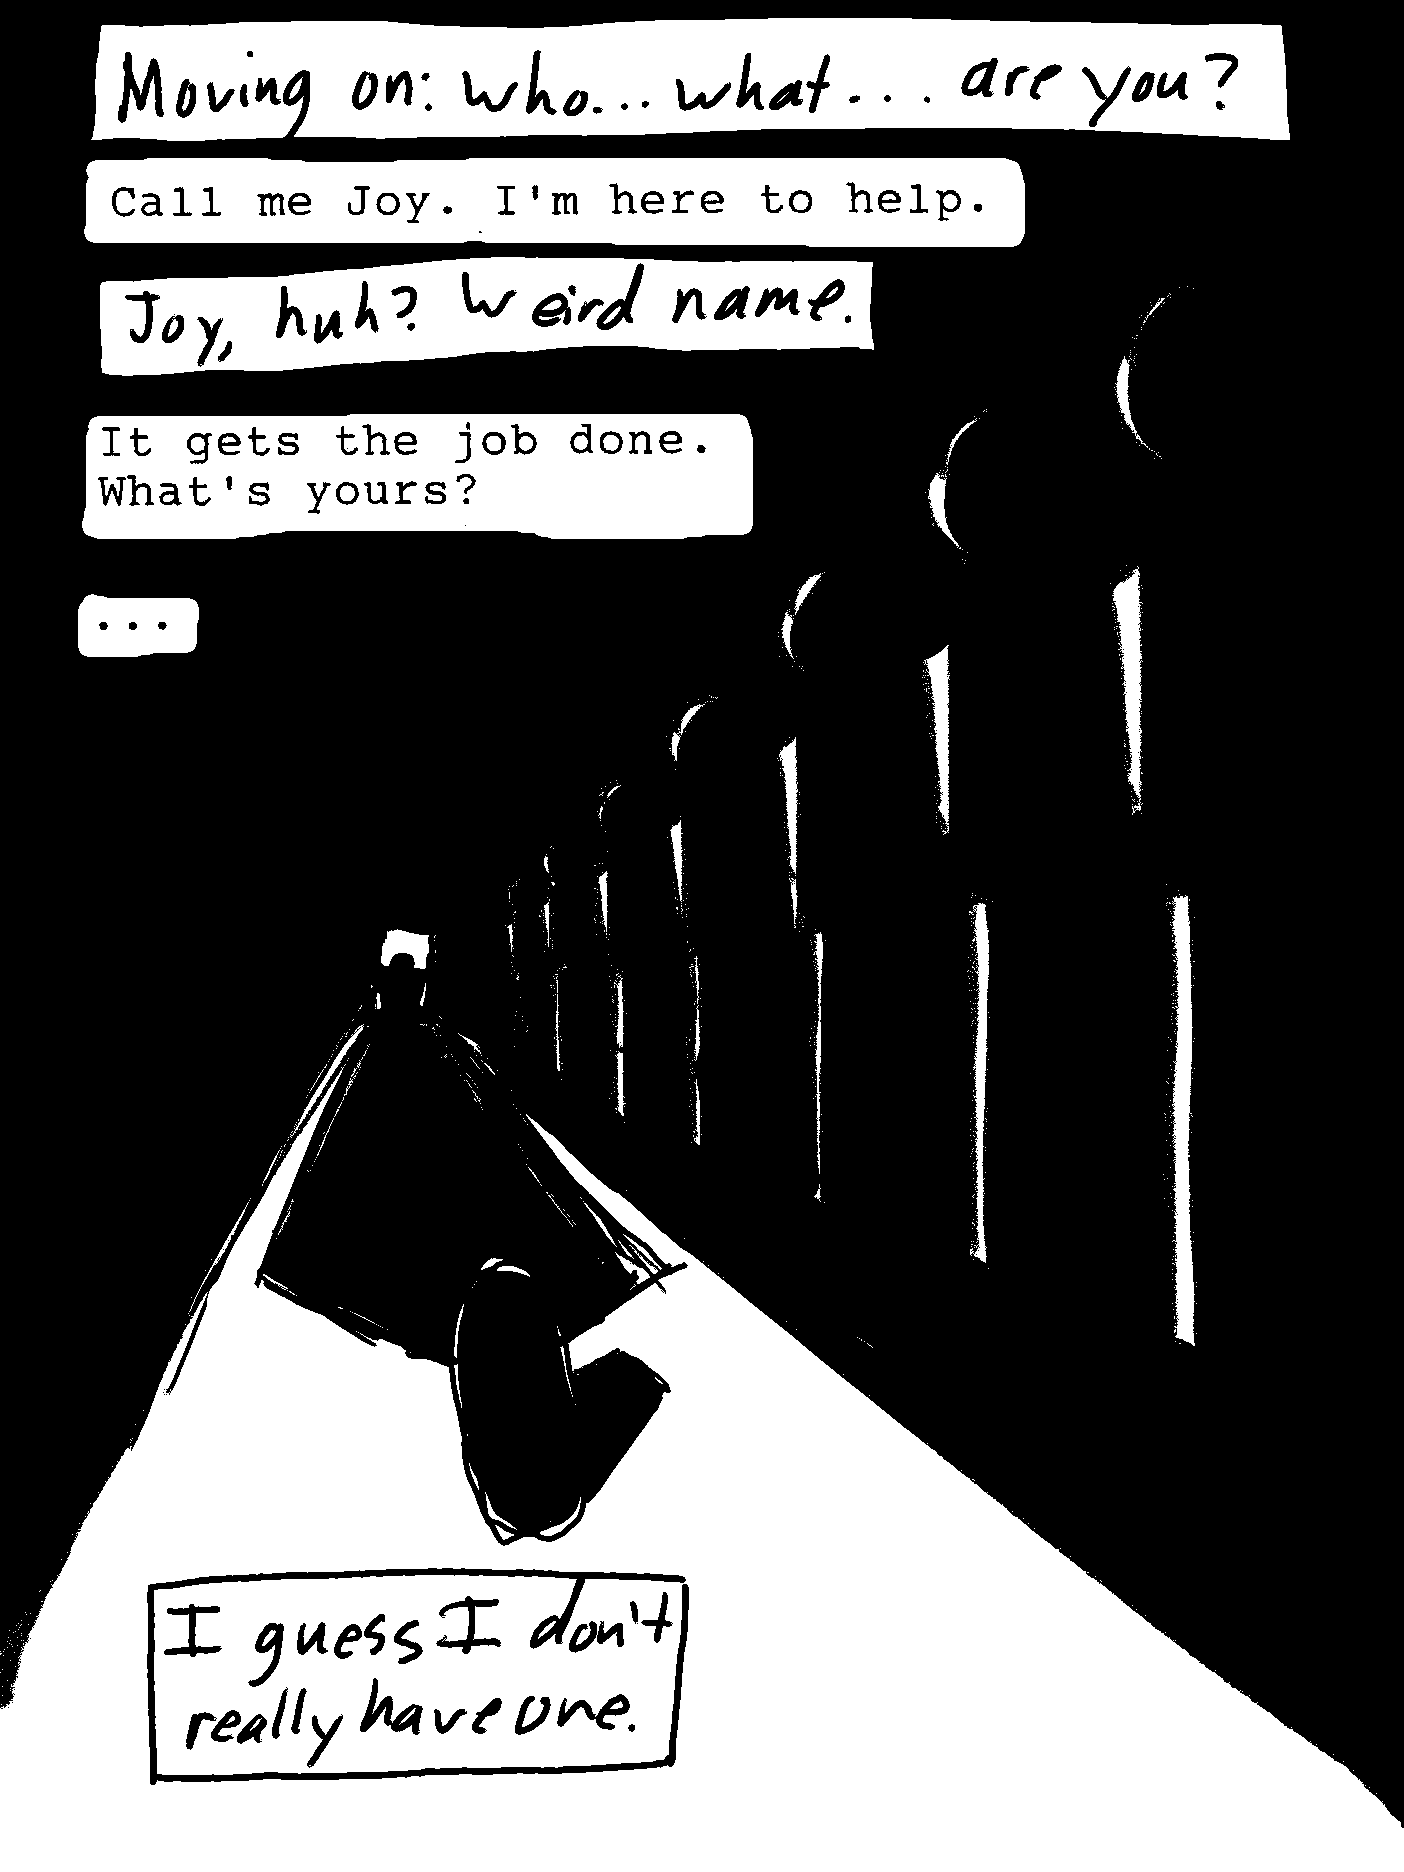 Moving on: who... what... are you?
Call me Joy. I'm here to help.
Joy, huh? Weird name.
It gets the job done.
What's yours?
...
I guess I don't
really have one.